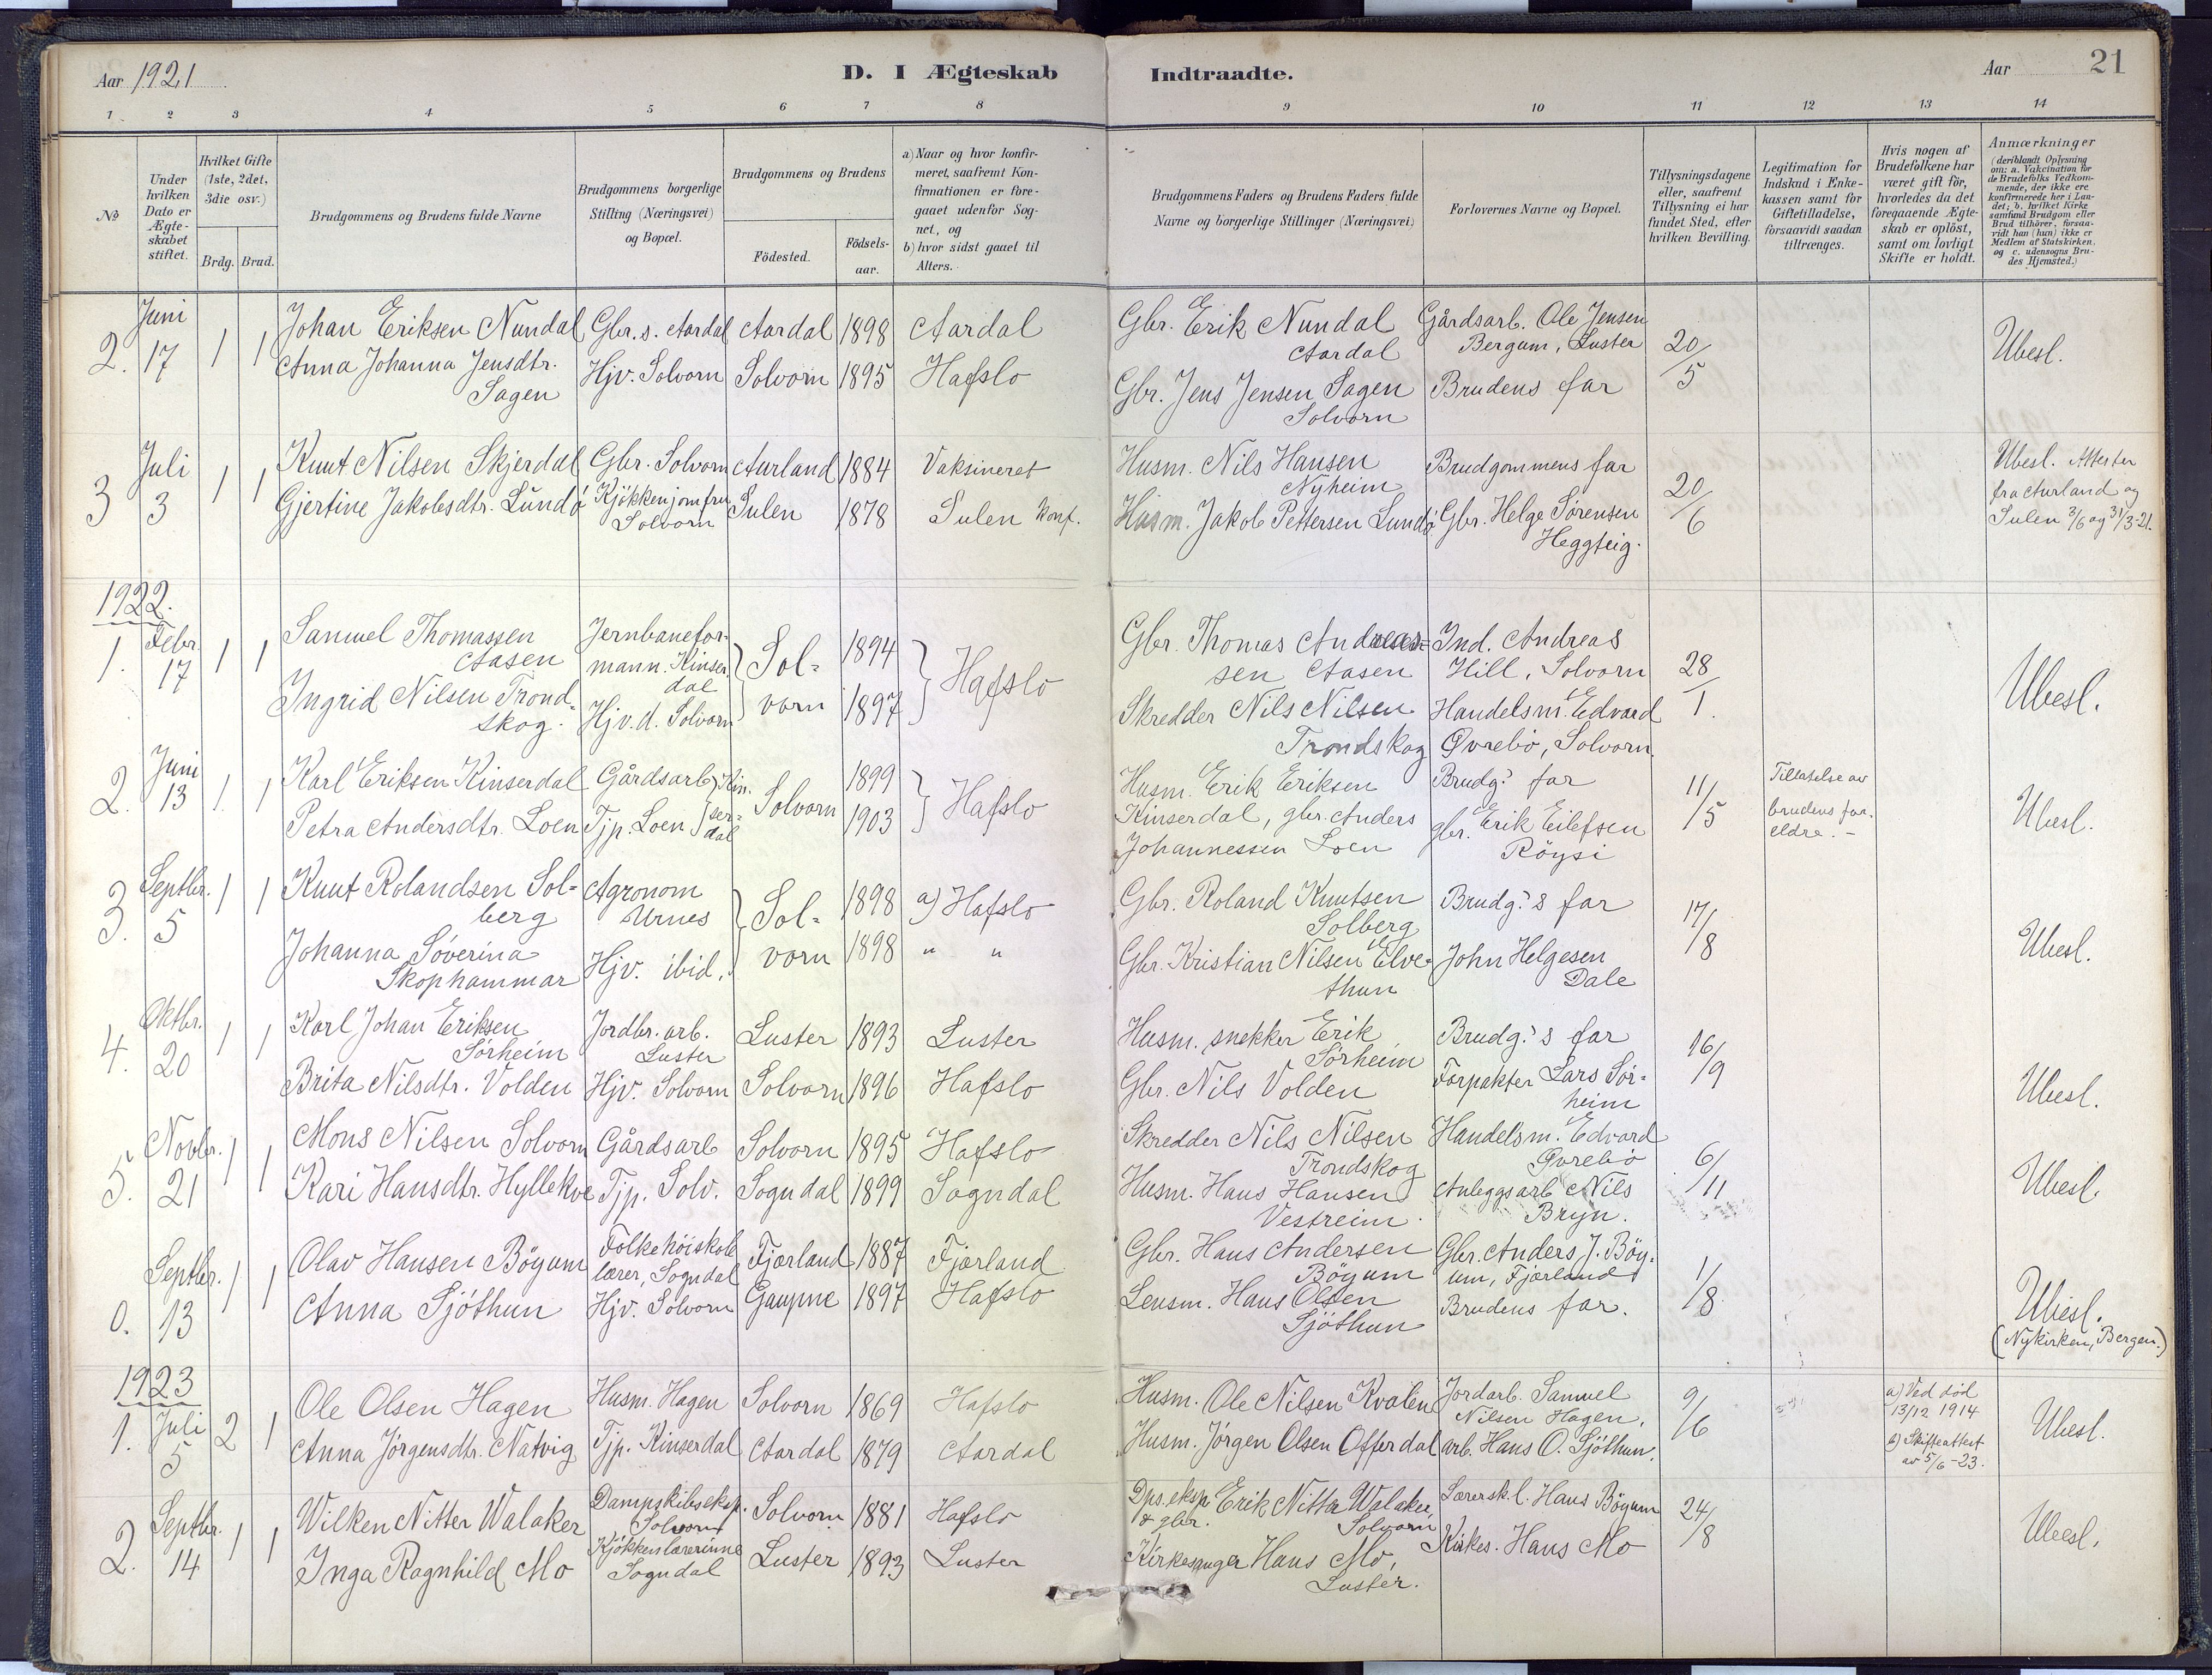 Aar 1921
D. I Ægteskab
Indtraadte.
Aar
21
1 2 3 4 5 6 7 8 9 10 11 12 13 14
№
Under hvilken Dato er Ægteskabet stiftet.
Hvilket Gifte (1ste, 2det, 3die osv.)
Brdg. Brud.
Brudgommens og Brudens fulde Navne
Brudgommens borgerlige Stilling (Næringsvei) og Bopæl.
Brudgommens og Brudens
Födested.
Födsels-aar.
a) Naar og hvor konfirmeret, saafremt Konfirmationen er foregaaet udenfor Sognet, og
b) hvor sidst gaaet til Alters.
Brudgommens Faders og Brudens Faders fulde Navne og borgerlige Stillinger (Næringsvei)
Forlovernes Navne og Bopæl.
Tillysningsdagene eller, saafremt Tillysning ei har fundet Sted, efter hvilken Bevilling.
Legitimation for Indskud i Enkekassen samt for Giftetilladelse, forsaavidt saadan tiltrænges.
Hvis nogen af Brudefolkene har været gift för, hvorledes da det foregaaende Ægteskab er oplöst, samt om lovligt Skifte er holdt.
Anmærkninger
(deriblandt Oplysning om: a. Vakcination för de Brudefolks Vedkommende, der ikke ere konfirmerede her i Landet; b. hvilket Kirkesamfund Brudgom eller Brud tilhörer, forsaavidt han (hun) ikke er Medlem af Statskirken, og c. udensogns Brudes Hjemsted.)
2. Juni 17 1 1
Johan Eriksen Nundal Gbr.s. Aardal Aardal 1898 Aardal
Anna Johanna Jensdtr. Sagen Hjv. Solvorn Solvorn 1895 Hafslo
Gbr. Erik Nundal Aardal
Gårdsarb. Ole Jensen Bergum, Luster
Gbr. Jens Jensen Sagen Solvorn
Brudens far
20/5
Ubesl.
3 Juli 3 1 1
Knut Nilsen Skjerdal Gbr. Solvorn Aurland 1884 Vaksineret
Gjertine Jakobsdtr. Lundö Kjökkenjomfru Solvorn Sulen 1878 Sulen konf.
Husm. Nils Hansen Nyheim
Brudgommens far
Husm. Jakob Pettersen Lundö
Gbr. Helge Sørensen Heggteig.
20/6
Ubesl. Attester fra Aurland og Sulen 3/6 og 31/3-21.
1922.
1. Febr. 17 1 1
Samuel Thomassen Aasen Jernbaneformann. Kinserdal 1894
Ingrid Nilsen Trondskog. Hjv. d. Solvorn 1897
Solvorn Hafslo
Gbr. Thomas Andreassen Aasen
Ind. Andreas Hill, Solvorn
Skredder Nils Nilsen Trondskog
Handelsm. Edvard Øvrebö, Solvorn.
28/1.
Ubesl.
2. Juni 13 1. 1
Karl Eriksen Kinserdal Gårdsarb. 1899
Petra Andersdtr. Loen Tjp. Loen Kinserdal 1903
Solvorn Hafslo
Husm. Erik Eriksen Kinserdal, gbr. Anders Johannessen Loen
Brudg.s far
gbr. Erik Eilefsen Röysi
11/5
Tillatelse av brudens foreldre. -
Ubesl.
3. Septbr. 5 1 1
Knut Rolandsen Solberg Agronom Urnes 1898 a) Hafslo
Johanna Söverina Skophammar Hjv. ibid. 1898 " "
Solvorn
Gbr. Roland Knutsen Solberg
Brudg.'s far
Gbr. Kristian Nilsen Elvethun
John Helgesen Dale
17/8
Ubesl.
4. Oktbr. 20 1 1
Karl Johan Eriksen Sörheim Jordbr. arb. Luster Luster 1893 Luster
Brita Nilsdtr. Volden Hjv. Solvorn Solvorn 1896 Hafslo
Husm. snekker Erik Sörheim
Brudg.'s far
Gbr. Nils Volden
Forpakter Lars Sörheim
16/9
Ubesl.
5. Novbr. 21 1 1
Mons Nilsen Solvorn Gårdsarb Solvorn 1895 Hafslo
Kari Hansdtr. Hyllekve Tjp. Solv. Sogndal 1899 Sogndal
Skredder Nils Nilsen Trondskog
Handelsm. Edvard Øvrebö
Husm. Hans Hansen Vestreim.
Anleggsarb Nils Bryn.
6/11
Ubesl.
0. Septbr. 13 1 1
Olav Hansen Böyum Folkehöiskolelærer, Sogndal Fjærland 1887 Fjærland
Anna Sjöthun Hjv. Solvorn Gaupne 1897 Hafslo
Gbr. Hans Andersen Böyum
Gbr. Anders J. Böyum, Fjærland
Lensm. Hans Olsen Sjöthun
Brudens far.
1/8
Ubesl. (Nykirken, Bergen.)
1923
1. Juli 5 2 1
Ole Olsen Hagen Husm. Hagen Solvorn 1869 Hafslo
Anna Jörgensdtr. Natvig Tjp. Kinserdal Aardal 1879 Aardal
Husm. Ole Nilsen Kvalen
Jordarb. Samuel Nilsen Hagen.
Husm. Jörgen Olsen Offerdal
arb. Hans O. Sjöthun.
9/6
a) Ved död 13/12 1914
b) Skifteattest av 5/6-23.
Ubesl.
2. Septbr. 14 1 1
Wilken Nitter Walaker Dampskibseksp. Solvorn Solvorn 1881 Hafslo
Inga Ragnhild Mo Kjökkenlærerinne Sogndal Luster 1893 Luster
Dps.eksp. & gbr. Erik Nitter Walaker, Solvorn
Lærersk.l. Hans Böyum
Kirkesanger Hans Mo, Luster.
Kirkes. Hans Mo
24/8
Ubesl.